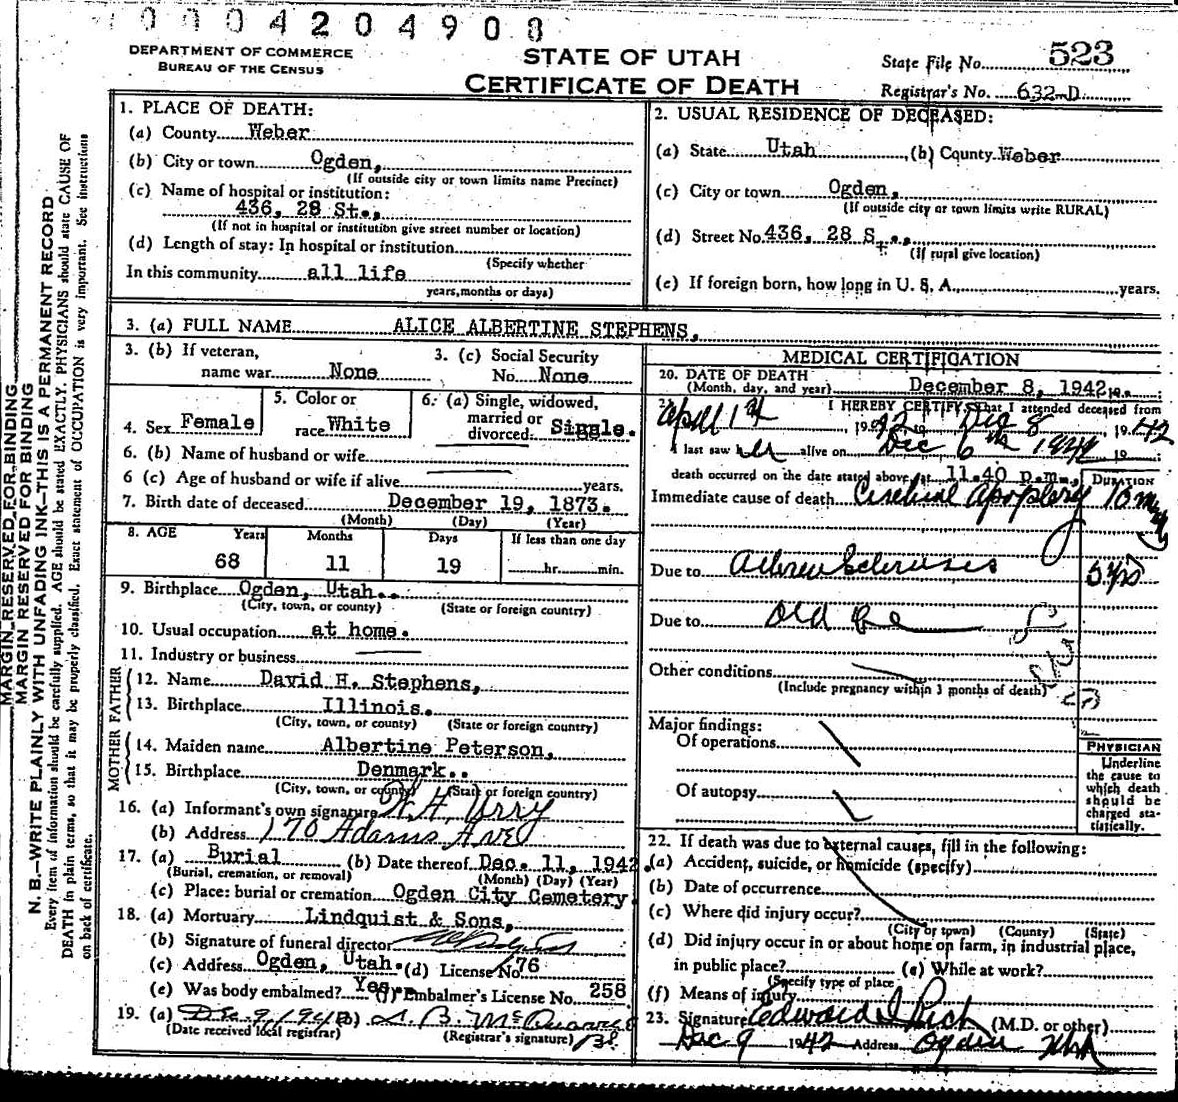 0004204908
DEPARTMENT OF COMMERCE
BUREAU OF THE CENSUS
STATE OF UTAH
CERTIFICATE OF DEATH
State File No. 523
Registrar's No. 632-D
MARGIN RESERVED FOR BINDING
MARGIN RESERVED FOR BINDING
N. B.—WRITE PLAINLY WITH UNFADING INK—THIS IS A PERMANENT RECORD
Every item of information should be carefully supplied. AGE should be stated EXACTLY. PHYSICIANS should state CAUSE OF
DEATH in plain terms, so that it may be properly classified. Exact statement of OCCUPATION is very important. See instructions
on back of certificate.
1. PLACE OF DEATH:
(a) County Weber
(b) City or town Ogden,
(If outside city or town limits name Precinct)
(c) Name of hospital or institution:
436, 28 St.,
(If not in hospital or institution give street number or location)
(d) Length of stay: In hospital or institution
(Specify whether
In this community all life
years, months or days)
2. USUAL RESIDENCE OF DECEASED:
(a) State Utah , (b) County Weber
(c) City or town Ogden,
(If outside city or town limits write RURAL)
(d) Street No. 436, 28 St.,
(If rural give location)
(e) If foreign born, how long in U. S. A. years.
3. (a) FULL NAME ALICE ALBERTINE STEPHENS,
3. (b) If veteran,
name war None
3. (c) Social Security
No. None
4. Sex Female
5. Color or
race White
6. (a) Single, widowed,
married or
divorced: Single.
6. (b) Name of husband or wife
6 (c) Age of husband or wife if alive years.
7. Birth date of deceased December 19, 1873.
(Month) (Day) (Year)
8. AGE Years Months Days If less than one day
68 11 19 hr. min.
9. Birthplace Ogden, Utah..
(City, town, or county) (State or foreign country)
10. Usual occupation at home.
11. Industry or business
FATHER
12. Name David H. Stephens,
13. Birthplace Illinois.
(City, town, or county) (State or foreign country)
MOTHER
14. Maiden name Albertine Peterson,
15. Birthplace Denmark..
(City, town, or county) (State or foreign country)
16. (a) Informant's own signature W. H. Urry
(b) Address 170 Adams Ave
17. (a) Burial (b) Date thereof Dec. 11, 1942
(Burial, cremation, or removal) (Month) (Day) (Year)
(c) Place: burial or cremation Ogden City Cemetery.
18. (a) Mortuary Lindquist & Sons,
(b) Signature of funeral director
(c) Address Ogden, Utah. (d) License No. 76
(e) Was body embalmed? Yes. (f) Embalmer's License No. 258
19. (a) Dec. 9, 1942 (b)
(Date received local registrar) (Registrar's signature)
MEDICAL CERTIFICATION
20. DATE OF DEATH
(Month, day, and year) December 8, 1942 19
21. I HEREBY CERTIFY, that I attended deceased from
April 1st , 1942 to Dec 8 , 1942
I last saw her alive on Dec 6th 1942 19
death occurred on the date stated above, at 11.40 p.m., DURATION
Immediate cause of death Cerebral Apoplexy
Due to Arteriosclerosis 5 yrs
Due to Old age
Other conditions
(Include pregnancy within 3 months of death)
Major findings:
Of operations
Of autopsy
PHYSICIAN
Underline
the cause to
which death
should be
charged sta-
tistically.
22. If death was due to external causes, fill in the following:
(a) Accident, suicide, or homicide (specify)
(b) Date of occurrence
(c) Where did injury occur?
(City or town) (County) (State)
(d) Did injury occur in or about home on farm, in industrial place,
in public place? (e) While at work?
(Specify type of place
(f) Means of injury
23. Signature Edward I Rich (M.D. or other)
Dec 9 1942 Address Ogden Utah